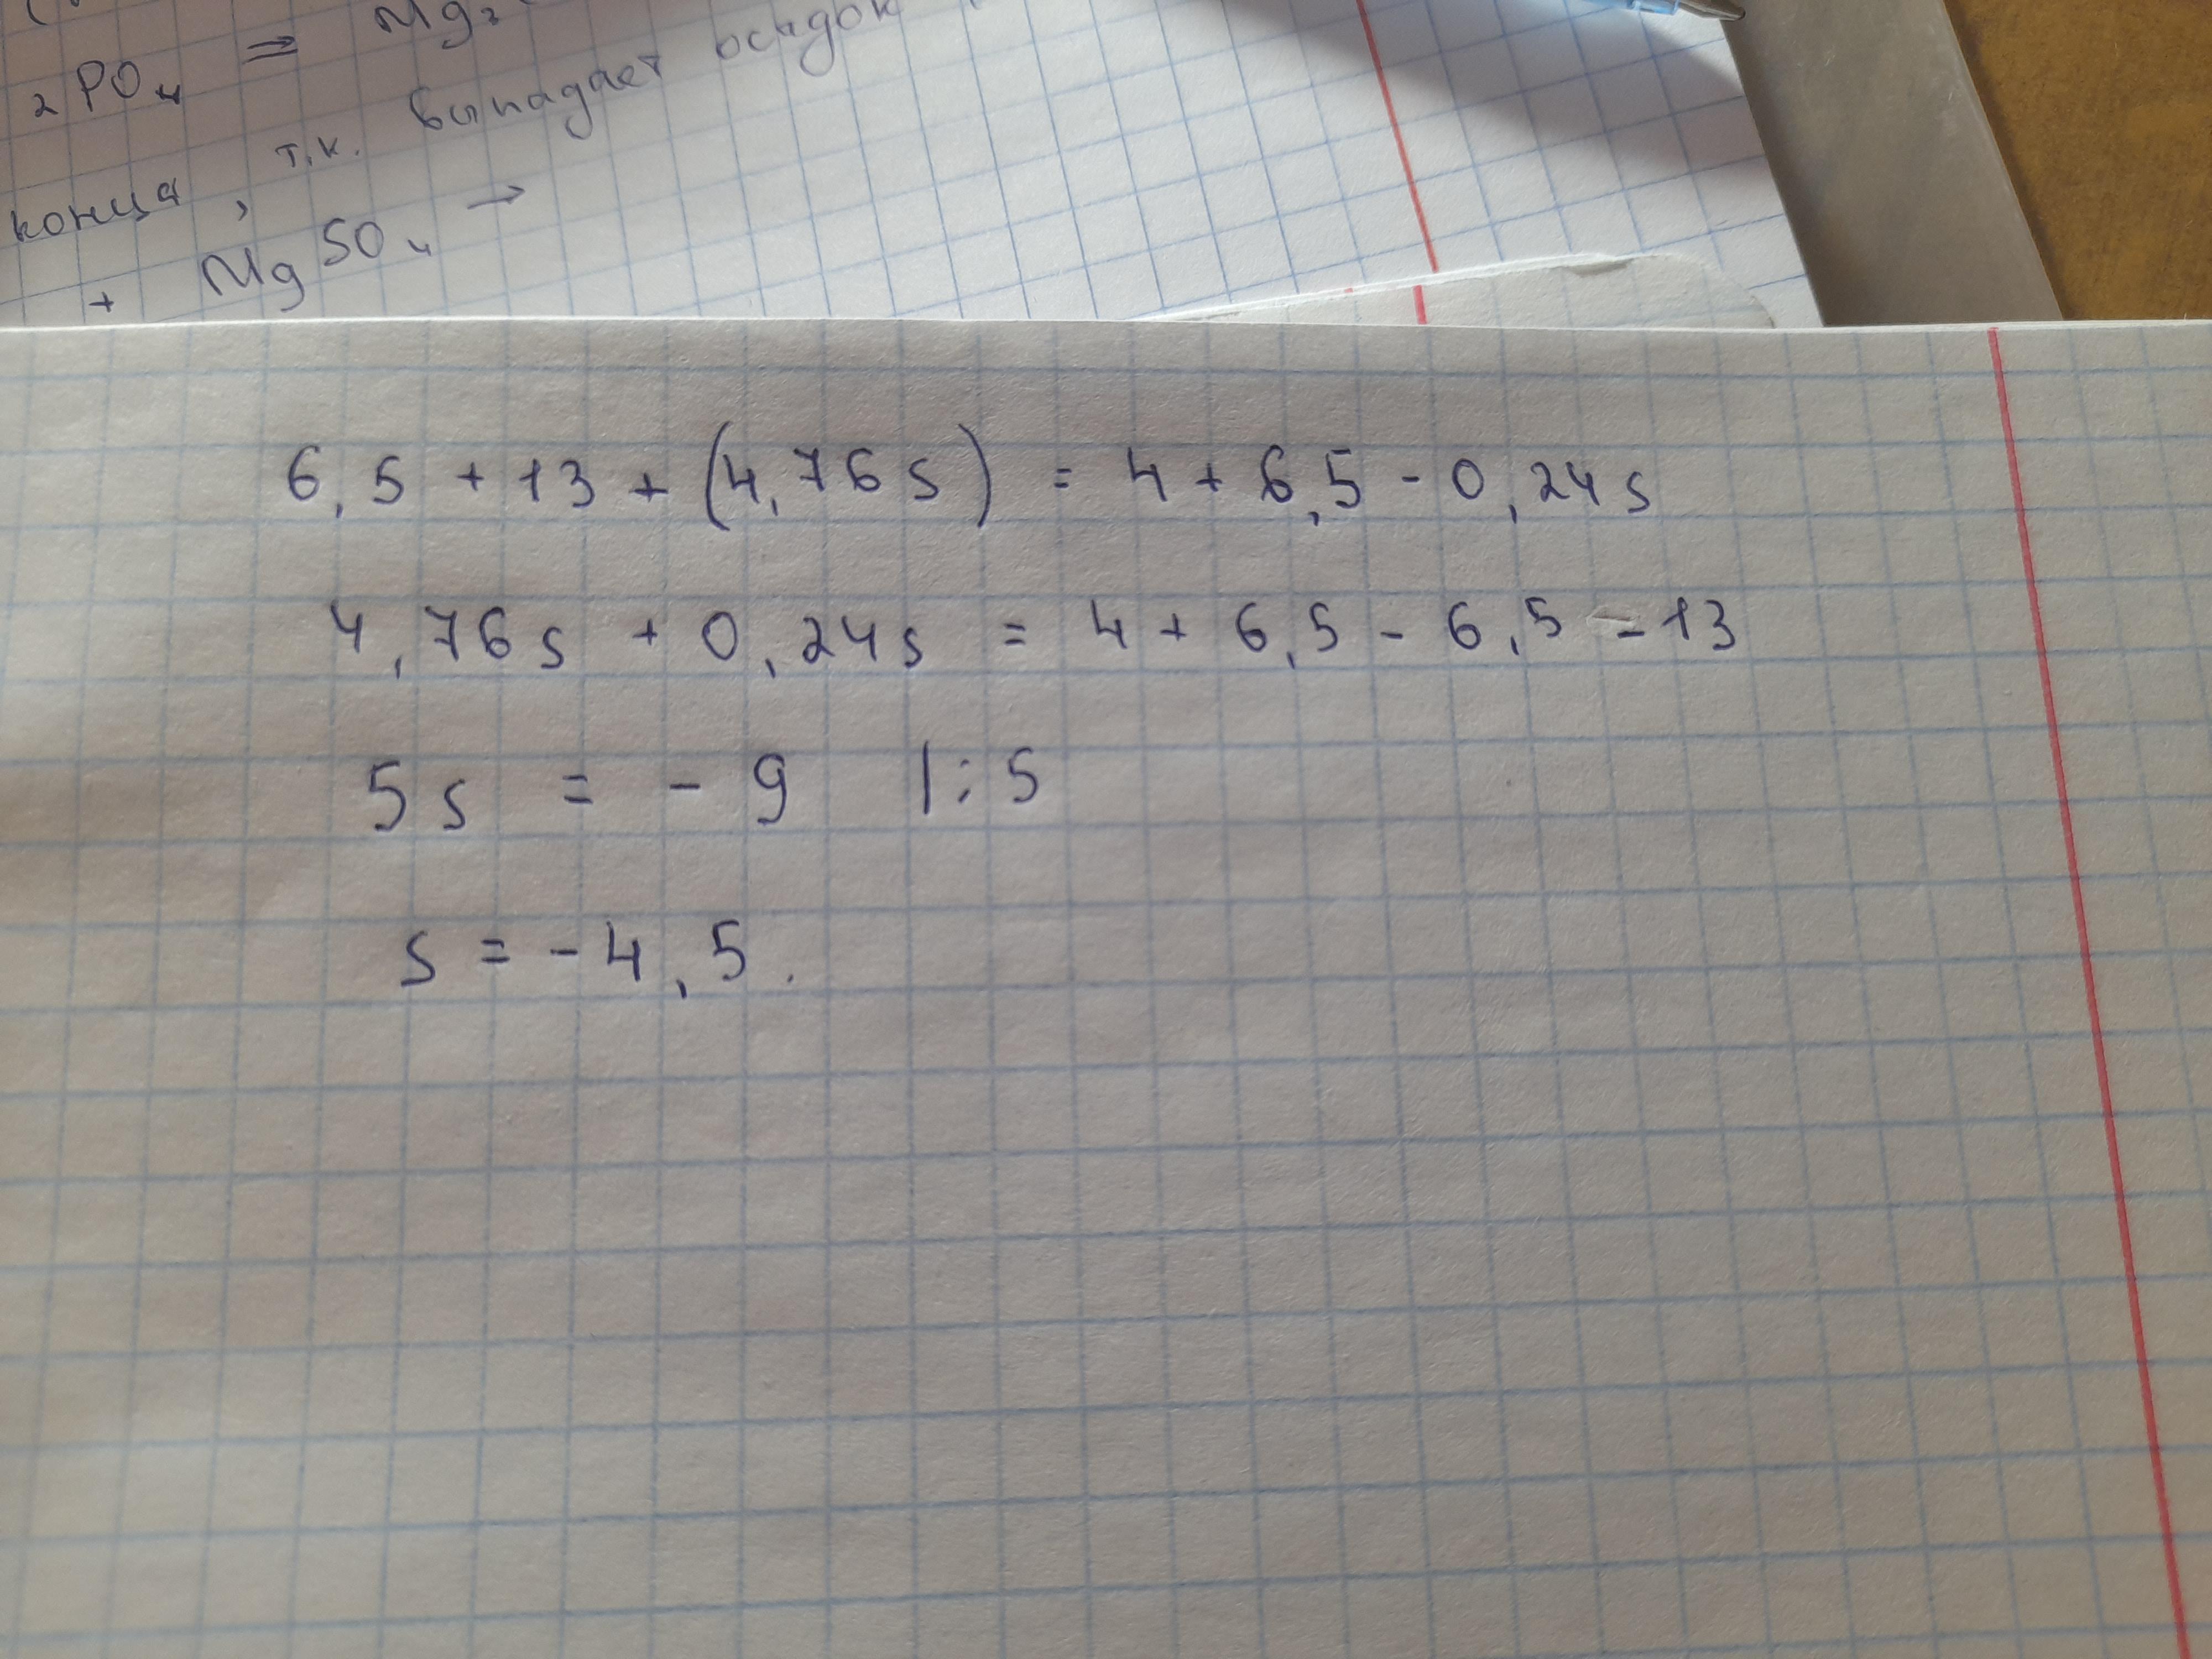 ₂PO₄ ⇒ Mg₃
конца, т.к. выпадает осадок
+ MgSO₄ →
6,5 + 13 + (4,76s) = 4 + 6,5 - 0,24s
4,76s + 0,24s = 4 + 6,5 - 6,5 - 13
5s = - 9 |:5
s = - 4,5.